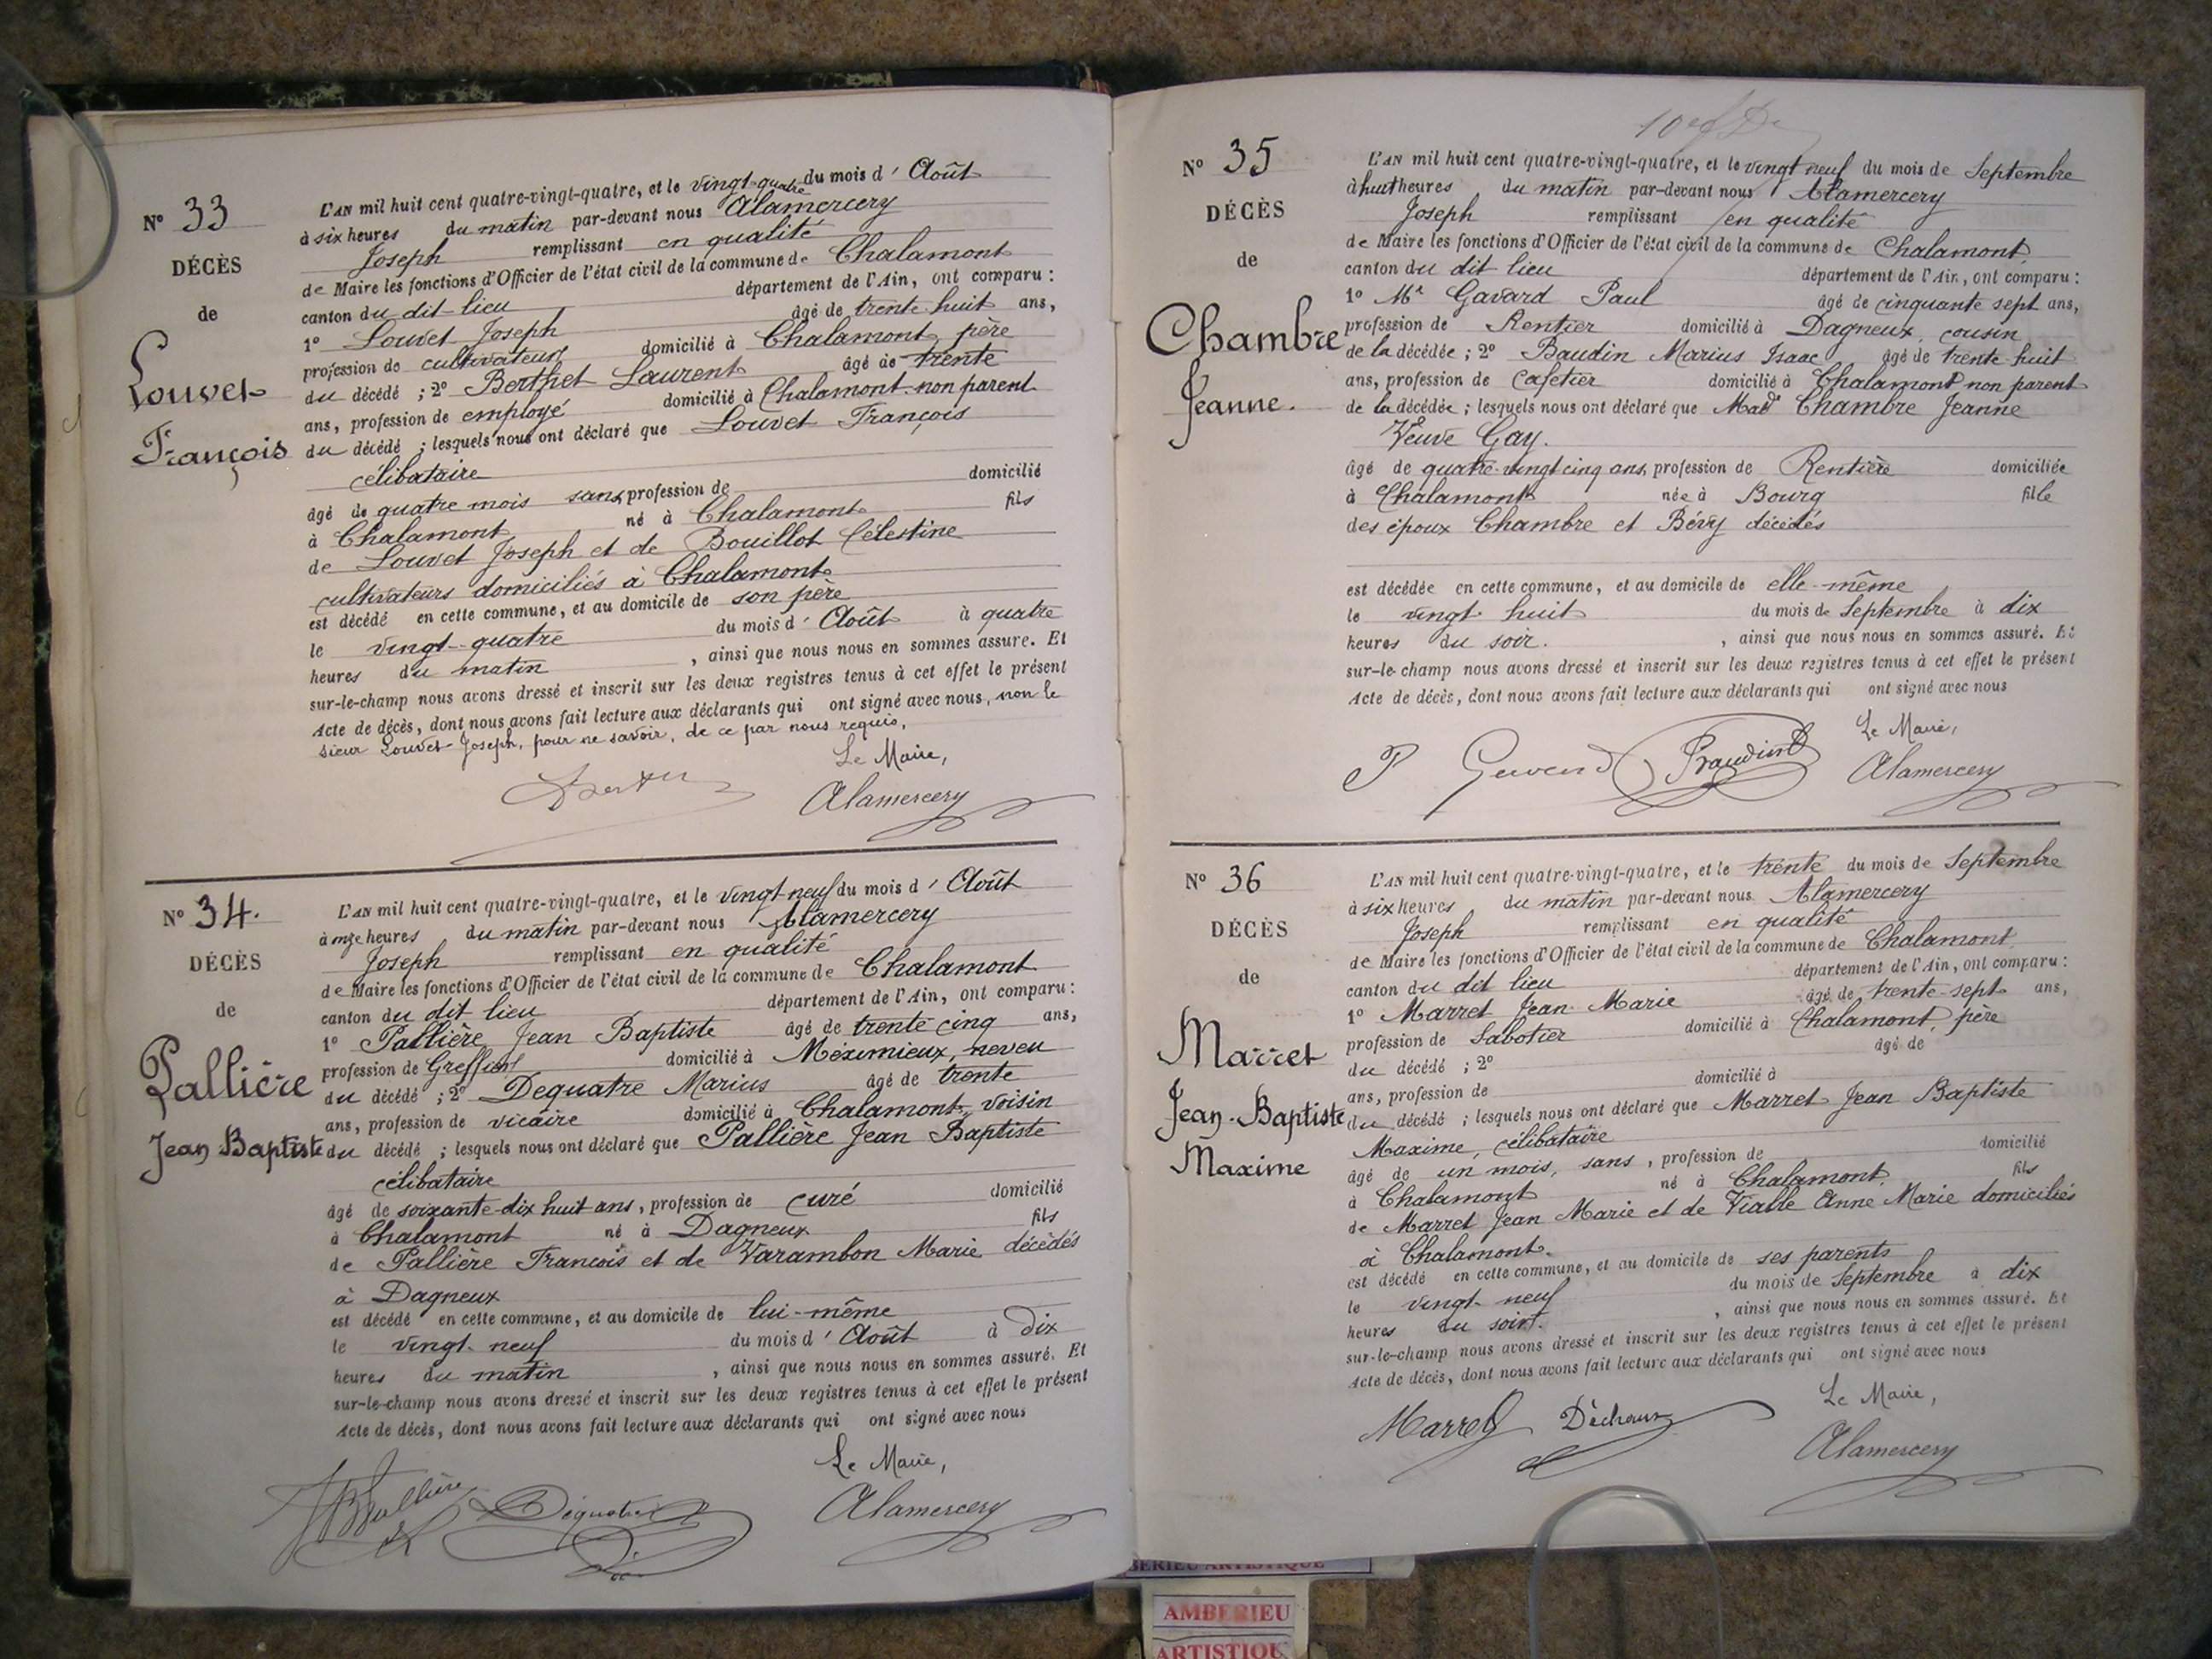 N° 33
DÉCÈS
de
Louvet
François
L'AN mil huit cent quatre-vingt-quatre, et le vingt-quatre du mois d' Août
à six heures du matin par-devant nous Alamercery
Joseph remplissant en qualité
de Maire les fonctions d'Officier de l'état civil de la commune de Chalamont
canton du dit-lieu département de l'Ain, ont comparu :
1° Louvet Joseph âgé de trente huit ans,
profession de cultivateur domicilié à Chalamont, père
du décédé ; 2° Berthet Laurent âgé de trente
ans, profession de employé domicilié à Chalamont non parent
du décédé ; lesquels nous ont déclaré que Louvet François
célibataire
âgé de quatre mois sans profession de domicilié
à Chalamont né à Chalamont fils
de Louvet Joseph et de Bouillot Célestine
cultivateurs domiciliés à Chalamont
est décédé en cette commune, et au domicile de son père
le vingt-quatre du mois d' Août à quatre
heures du matin , ainsi que nous nous en sommes assuré. Et
sur-le-champ nous avons dressé et inscrit sur les deux registres tenus à cet effet le présent
Acte de décès, dont nous avons fait lecture aux déclarants qui ont signé avec nous, non le
sieur Louvet Joseph, pour ne savoir, de ce par nous requis.
Le Maire,
Alamercery
N° 34.
DÉCÈS
de
Pallière
Jean Baptiste
L'AN mil huit cent quatre-vingt-quatre, et le vingt-neuf du mois d' Août
à onze heures du matin par-devant nous Alamercery
Joseph remplissant en qualité
de Maire les fonctions d'Officier de l'état civil de la commune de Chalamont
canton du dit lieu département de l'Ain, ont comparu :
1° Pallière Jean Baptiste âgé de trente cinq ans,
profession de Greffier domicilié à Méximieux, neveu
du décédé ; 2° Dequatre Marius âgé de trente
ans, profession de vicaire domicilié à Chalamont, voisin
du décédé ; lesquels nous ont déclaré que Pallière Jean Baptiste
célibataire
âgé de soixante-dix huit ans, profession de curé domicilié
à Chalamont né à Dagneux fils
de Pallière François et de Varambon Marie décédés
à Dagneux
est décédé en cette commune, et au domicile de lui-même
le vingt-neuf du mois d' Août à dix
heures du matin , ainsi que nous nous en sommes assuré. Et
sur-le-champ nous avons dressé et inscrit sur les deux registres tenus à cet effet le présent
Acte de décès, dont nous avons fait lecture aux déclarants qui ont signé avec nous
Le Maire,
JBPallière Déquatre Alamercery
N° 35
DÉCÈS
de
Chambre
Jeanne.
L'AN mil huit cent quatre-vingt-quatre, et le vingt neuf du mois de Septembre
à huit heures du matin par-devant nous Alamercery
Joseph remplissant en qualité
de Maire les fonctions d'Officier de l'état civil de la commune de Chalamont
canton du dit lieu département de l'Ain, ont comparu :
1° Mr Gavard Paul âgé de cinquante sept ans,
profession de Rentier domicilié à Dagneux, cousin
de la décédée ; 2° Baudin Marius Isaac âgé de trente huit
ans, profession de Cafetier domicilié à Chalamont non parent
de la décédée ; lesquels nous ont déclaré que Made Chambre Jeanne
Veuve Gay.
âgé de quatre-vingt cinq ans, profession de Rentière domiciliée
à Chalamont née à Bourg fille
des époux Chambre et Bévy décédés
est décédée en cette commune, et au domicile de elle-même
le vingt huit du mois de Septembre à dix
heures du soir. , ainsi que nous nous en sommes assuré. Et
sur-le-champ nous avons dressé et inscrit sur les deux registres tenus à cet effet le présent
Acte de décès, dont nous avons fait lecture aux déclarants qui ont signé avec nous
Le Maire,
Alamercery
N° 36
DÉCÈS
de
Marret
Jean-Baptiste
Maxime
L'AN mil huit cent quatre-vingt-quatre, et le trente du mois de Septembre
à six heures du matin par-devant nous Alamercery
Joseph remplissant en qualité
de Maire les fonctions d'Officier de l'état civil de la commune de Chalamont
canton du dit lieu département de l'Ain, ont comparu :
1° Marret Jean Marie âgé de trente-sept ans,
profession de Sabotier domicilié à Chalamont, père
du décédé ; 2° âgé de
ans, profession de domicilié à
du décédé ; lesquels nous ont déclaré que Marret Jean Baptiste
Maxime, célibataire
âgé de un mois, sans, profession de domicilié
à Chalamont né à Chalamont fils
de Marret Jean Marie et de Vialle Anne Marie domiciliés
à Chalamont.
est décédé en cette commune, et au domicile de ses parents
le vingt-neuf du mois de Septembre à dix
heures du soir. , ainsi que nous nous en sommes assuré. Et
sur-le-champ nous avons dressé et inscrit sur les deux registres tenus à cet effet le présent
Acte de décès, dont nous avons fait lecture aux déclarants qui ont signé avec nous
Le Maire,
Marret Alamercery
AMBERIEU